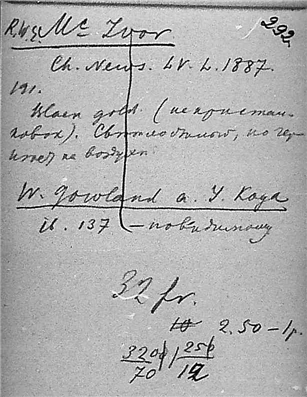 292.
R.W.E. Mc Ivor
Ch. News. LV. L. 1887.
191.
Black gold. (не кристал-
лован). Светложелтый, но чер-
неет на воздухе.
W. Gowland a. Y. Koga
ib. 137 – повидимому
32 fr.
10 2.50 – 1р.
3200 | 250
70 12